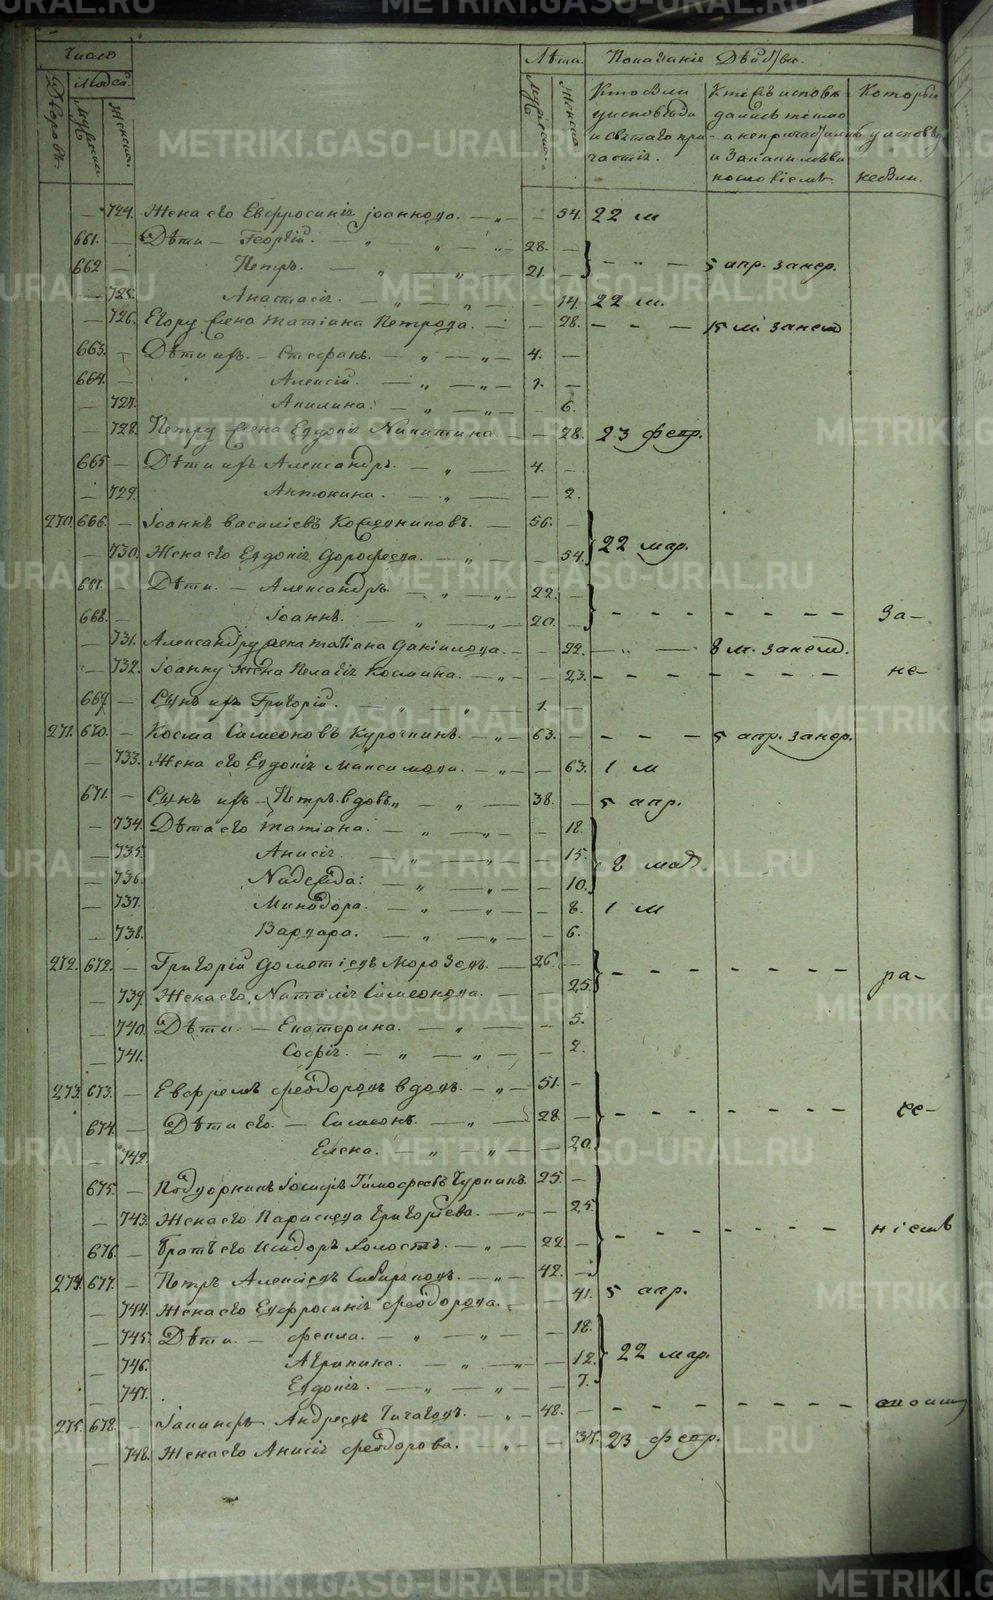 Число
Людей
Дворовъ
Мужеска
Женска
Лѣта
Мужеска
Женска
Показаніе Дѣйства
Кто были у исповѣди и Святаго причастія.
Которы
724. Жена его Евфросинія Іоаннова. 54. 22 м
661. Дѣти – Георгій. 28.
662 Петръ. 21. 5 апр. занер.
725. Анастасія. 14. 22 м.
726. Егору жена Татіана Петрова. 28. 15 м. занер
663. Дѣти ихъ. – Стефанъ. 4.
664. Алексій. 1.
727. Акилина. 6.
728. Петру жена Евдокія Никитина. 28. 23 февр.
665 Дѣти ихъ Александръ. 4.
729. Антонина. 2.
270. 666. Іоаннъ Василіевъ 56.
730. Жена его Евдокія Дорофеева. 54. 22 мар.
667. Дѣти. – Александръ. 22.
668. Іоаннъ. 20. За-
731. Александру жена Татіана Даніилова. 22. 8 м. занер.
732. Іоанну жена Пелагія Космина. 23. не-
669. Сынъ ихъ Григорій. 1.
271. 670. Косма Симеоновъ Курочкинъ. 63. 5 апр. занер.
733. Жена его Евдокія Максимова. 63. 1 м
671. Сынъ ихъ – Петръ вдовъ 38. 5 апр.
734. Дѣти его Татіана. 18.
735. Анисія. 15. 8 мар.
736. Надежда. 10.
737. Минодора. 8. 1 м
738. Варвара. 6.
272. 672. Григорій Дометіевъ Морозовъ. 26.
739. Жена его, Наталія Симеонова. 25. ра-
740. Дѣти – Екатерина. 5.
741. Софія. 2.
273. 673. Евфремъ Феодоровъ вдовъ. 51.
674. Дѣти его. – Симеонъ. 28.
742. Елена. 20.
675. Іосифъ Тимофеевъ 25.
743. Жена его Параскева Григорьева. 25. ніемъ
676. Братъ его Исидоръ Холостъ. 22.
274. 677. Петръ Алексіевъ 42.
744. Жена его Евфросинія Феодорова. 41. 5 апр.
745. Дѣти. – Фекла. 18.
746. Агрипина. 12. 22 мар.
747. Евдокія. 7.
275. 678. Андреевъ 48.
748. Жена его Анисія Феодорова. 37. 23 февр.
METRIKI.GASO-URAL.RU